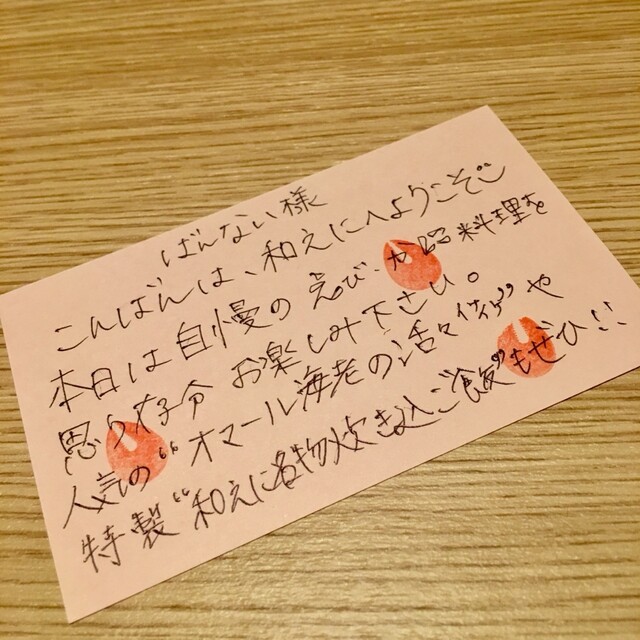 ばんない様
こんばんは、和えにへようこそ
本日は自慢の えび・カニ料理を
思う存分 お楽しみ下さい。
人気の“オマール海老の活々作り”や
特製“和えに名物炊き込ご飯”もぜひ!!